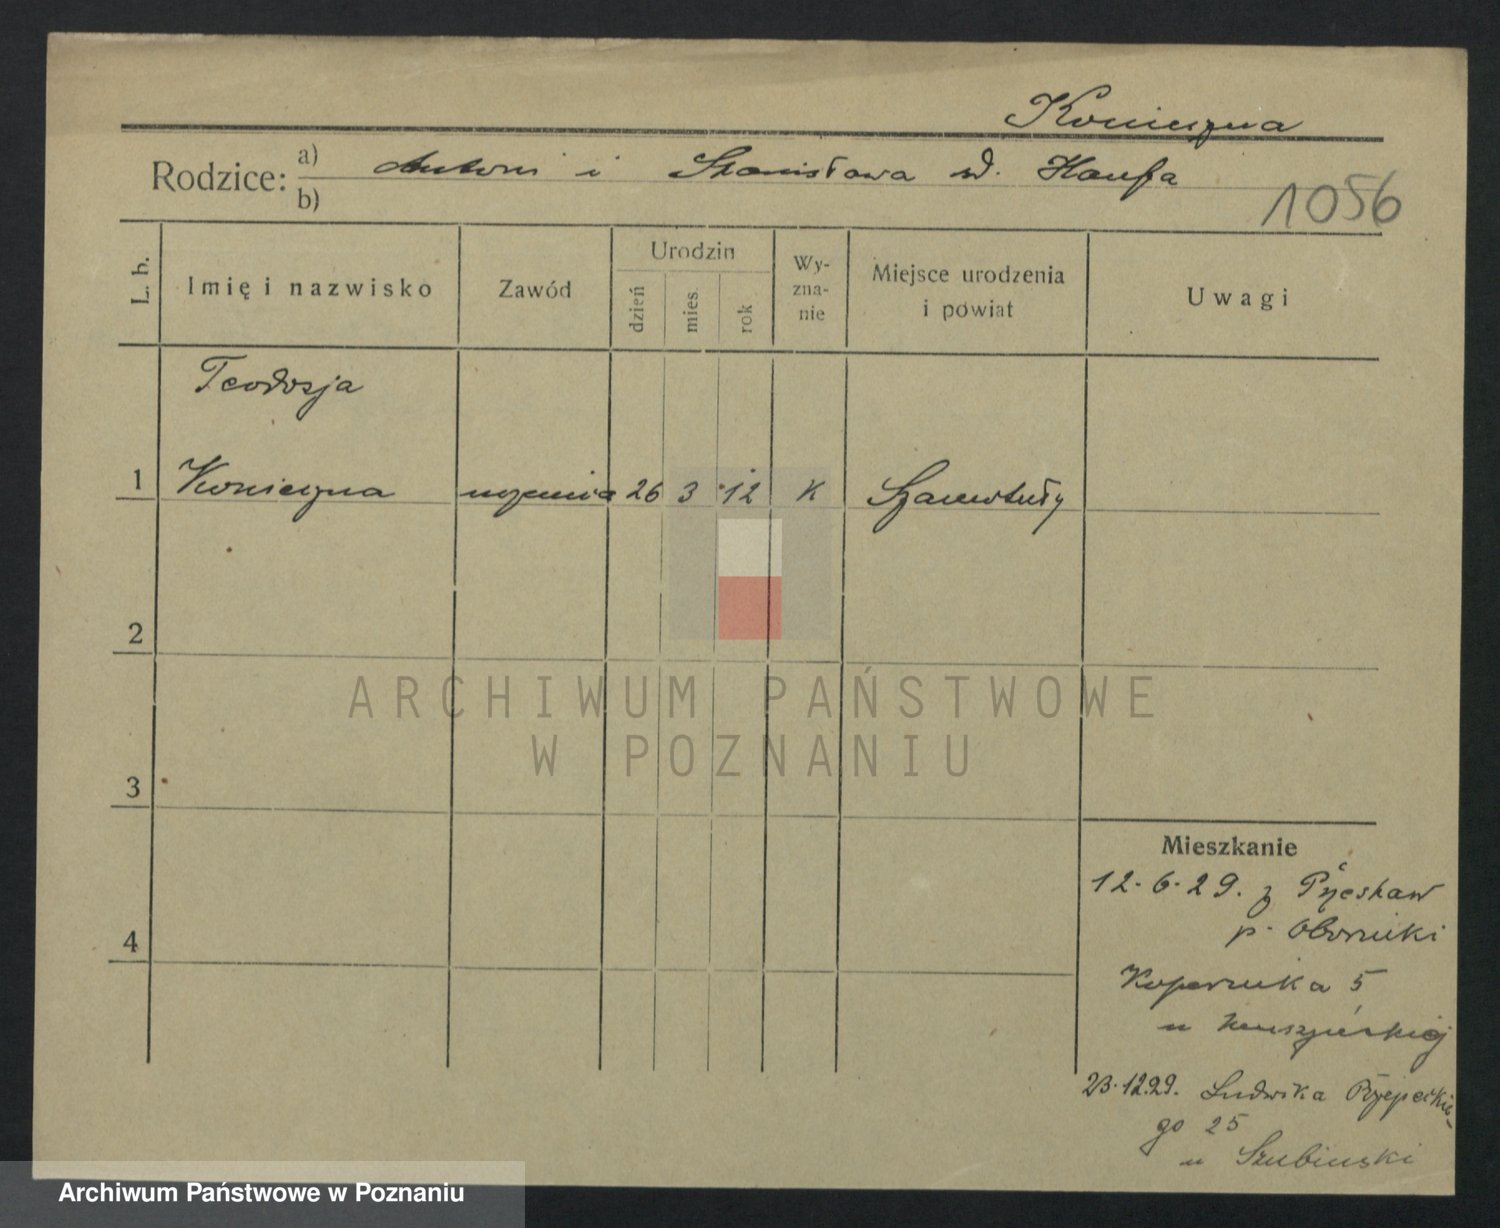 Konieczna
Rodzice: a) Antoni i Stanisława zd. Haufa
b)
1056
L. b. Imię i nazwisko Zawód Urodzin dzień mies. rok Wyznanie Miejsce urodzenia i powiat Uwagi
Teodozja
1 Konieczna uczenica 26 3 12 K Szamotuły
2
3
4
Mieszkanie
12.6.29. z
p. Oborniki
Kopernika 5
u
23.12.29. Ludwika Rzepeckie-
go 25
u Szubinski
ARCHIWUM PAŃSTWOWE
W POZNANIU
Archiwum Państwowe w Poznaniu